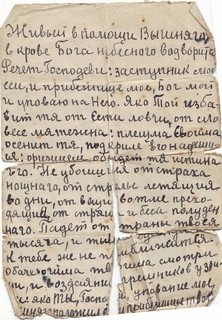 Живый в помощи Вышняго
в крове Бога небесного водворится
Речет Господеви: заступник мой
еси, и прибежище мое, Бог мой
и уповаю на Него. Яко Той избавит
вит тя от сети ловчи, от сло
весе мятежна: плещма Своима
осенит тя, под криле Его надеши
ся: оружием обыдет тя истина
Его. Не убоишся от страха
нощнаго, от стрелы летящия
во дни, от вещи во тме прехо
дящия, от сряща и беса полуден
наго. Падет от страны твоея
тысяча, и тма
к тебе же не приближится
обаче очима твоима смотри
ши, и воздаяние грешников узриши
яко Ты, Господи, упование мое
положил прибежище твое